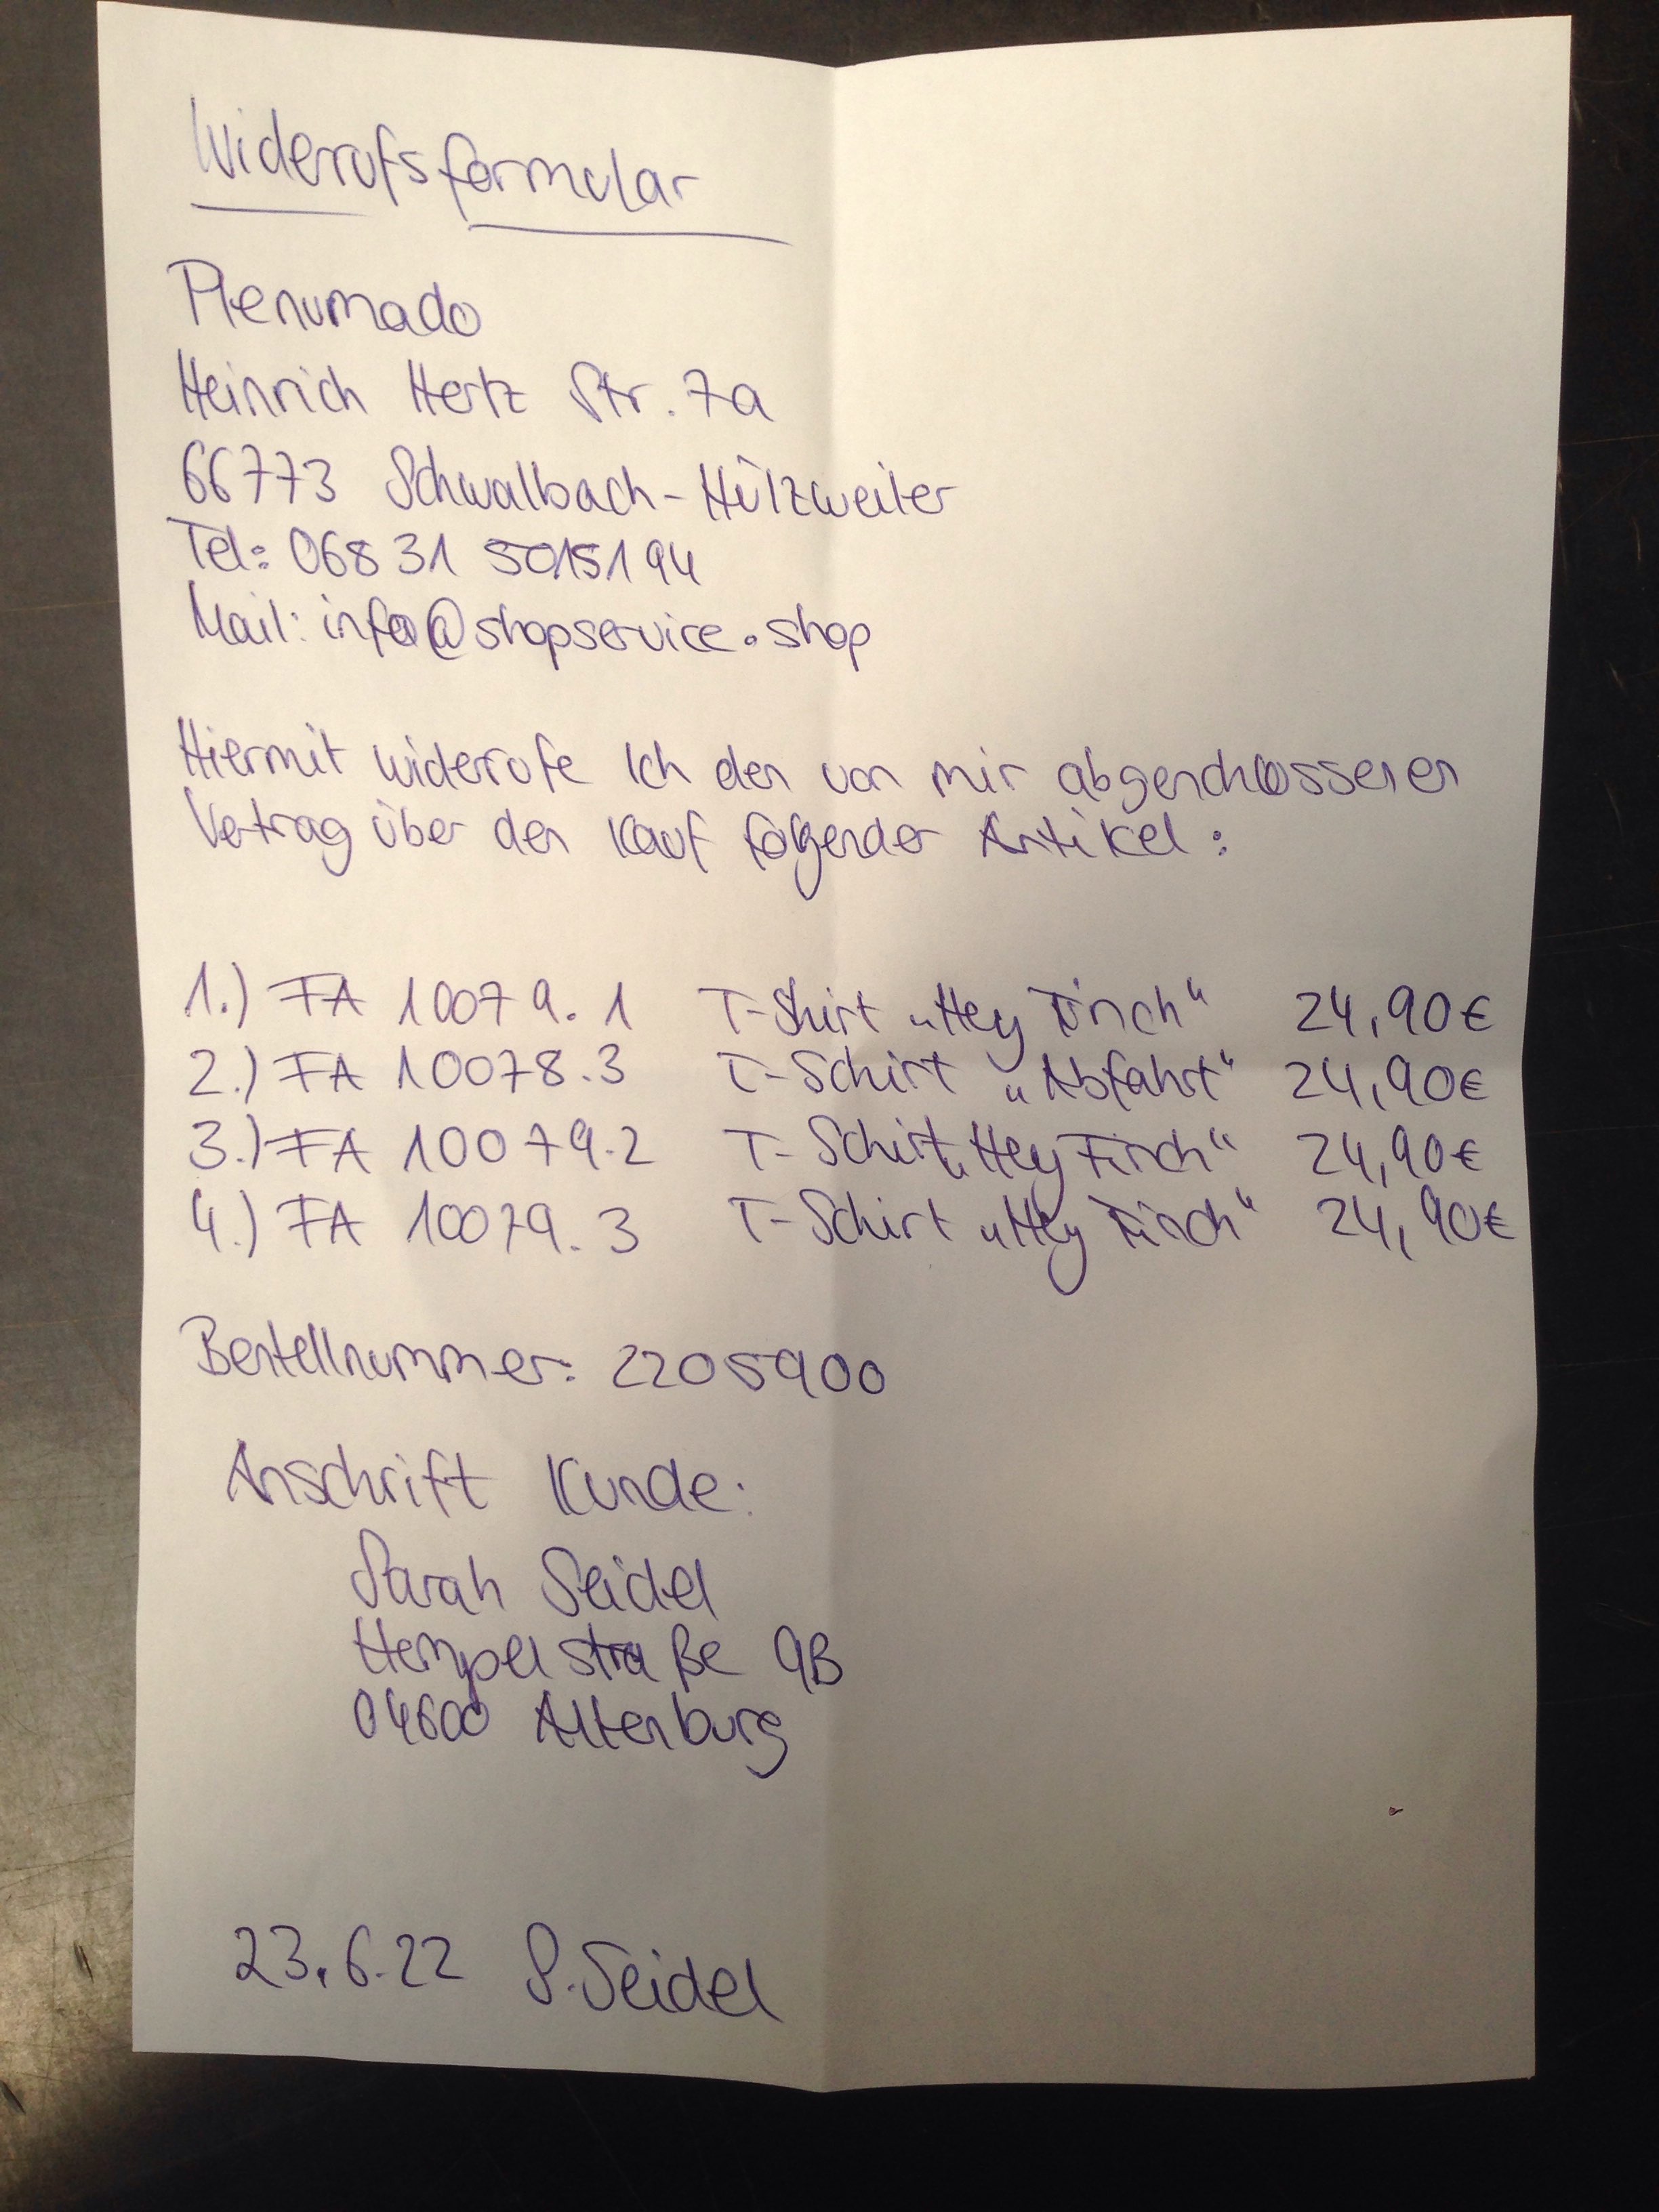 Widerrufsformular
Plenumado
Heinrich Hertz Str. 7a
66773 Schwalbach-Hülzweiler
Tel: 06831 5015194
Mail: info@shopservice.shop
Hiermit widerrufe Ich den von mir abgeschlossenen
Vertrag über den Kauf folgender Artikel:
1.) FA 10079.1 T-Shirt „Hey Finch“ 24,90€
2.) FA 10078.3 T-Schirt „Abfahrt“ 24,90€
3.) FA 10079.2 T-Schirt „Hey Finch“ 24,90€
4.) FA 10079.3 T-Schirt „Hey Finch“ 24,90€
Bestellnummer: 2205900
Anschrift Kunde:
Sarah Seidel
Hempelstraße 9B
04600 Altenburg
23.6.22 S. Seidel